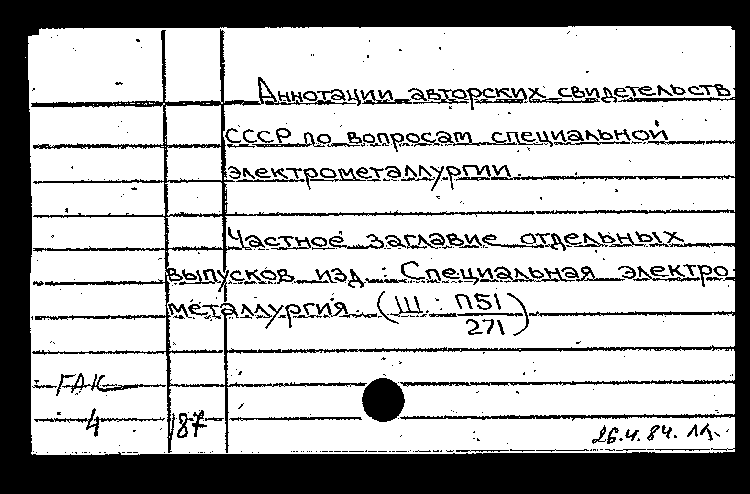 Аннотации авторских свидетельств
СССР по вопросам специальной
электрометаллургии.
Частное заглавие отдельных
выпусков изд.: Специальная электро
металлургия. (Ш: П51/271)
ГАК
4 187
26.4.84.